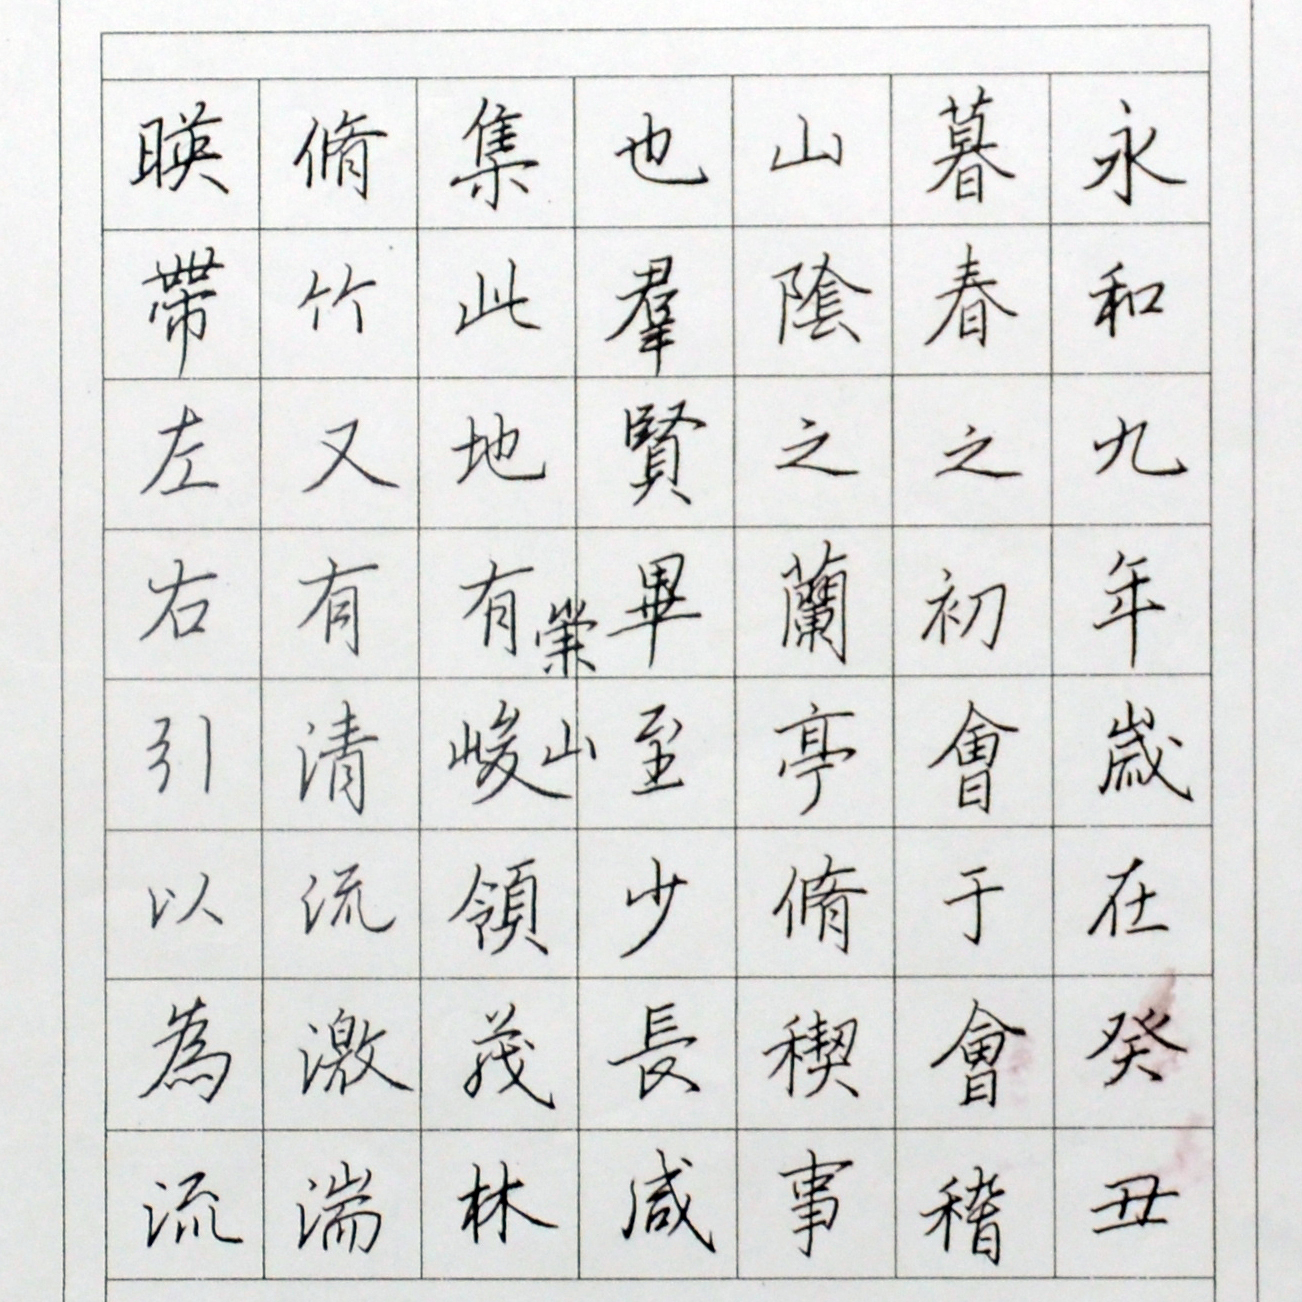 永和九年歲在癸丑
暮春之初會于會稽
山陰之蘭亭脩稧事
也羣賢畢至少長咸
集此地有崇山峻領茂林
脩竹又有清流激湍
暎帶左右引以為流